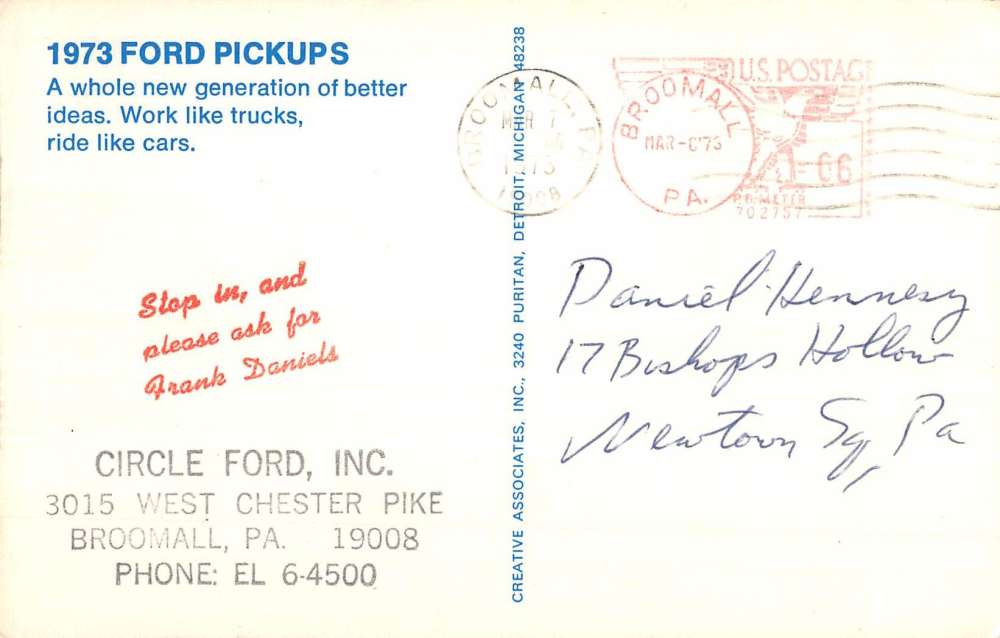 1973 FORD PICKUPS
A whole new generation of better
ideas. Work like trucks,
ride like cars.
Stop in, and
please ask for
Frank Daniels
CIRCLE FORD, INC.
3015 WEST CHESTER PIKE
BROOMALL, PA. 19008
PHONE: EL 6-4500
CREATIVE ASSOCIATES, INC., 3240 PURITAN, DETROIT, MICHIGAN 48238
BROOMALL, PA
MAR 7
1973
BROOMALL
MAR-6'73
PA.
U.S. POSTAGE
06
P.B. METER
702757
Daniel Hennesy
17 Bishops Hollow
Newtown Sq, Pa